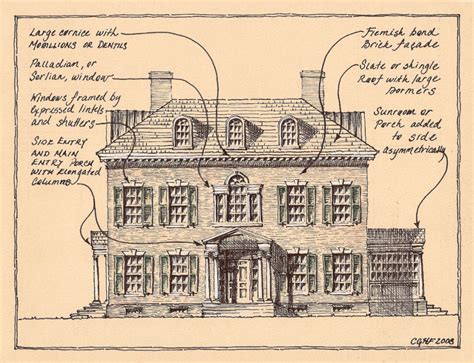 Large cornice with
Modillions or Dentils
Palladian, or
Serlian, window
Windows framed by
expressed lintels
and shutters
Side entry
and main
entry porch
with elongated
columns
Flemish bond
Brick façade
Slate or shingle
Roof with large
Dormers
Sunroom or
Porch added
to side
asymmetrically
CGHF 2008